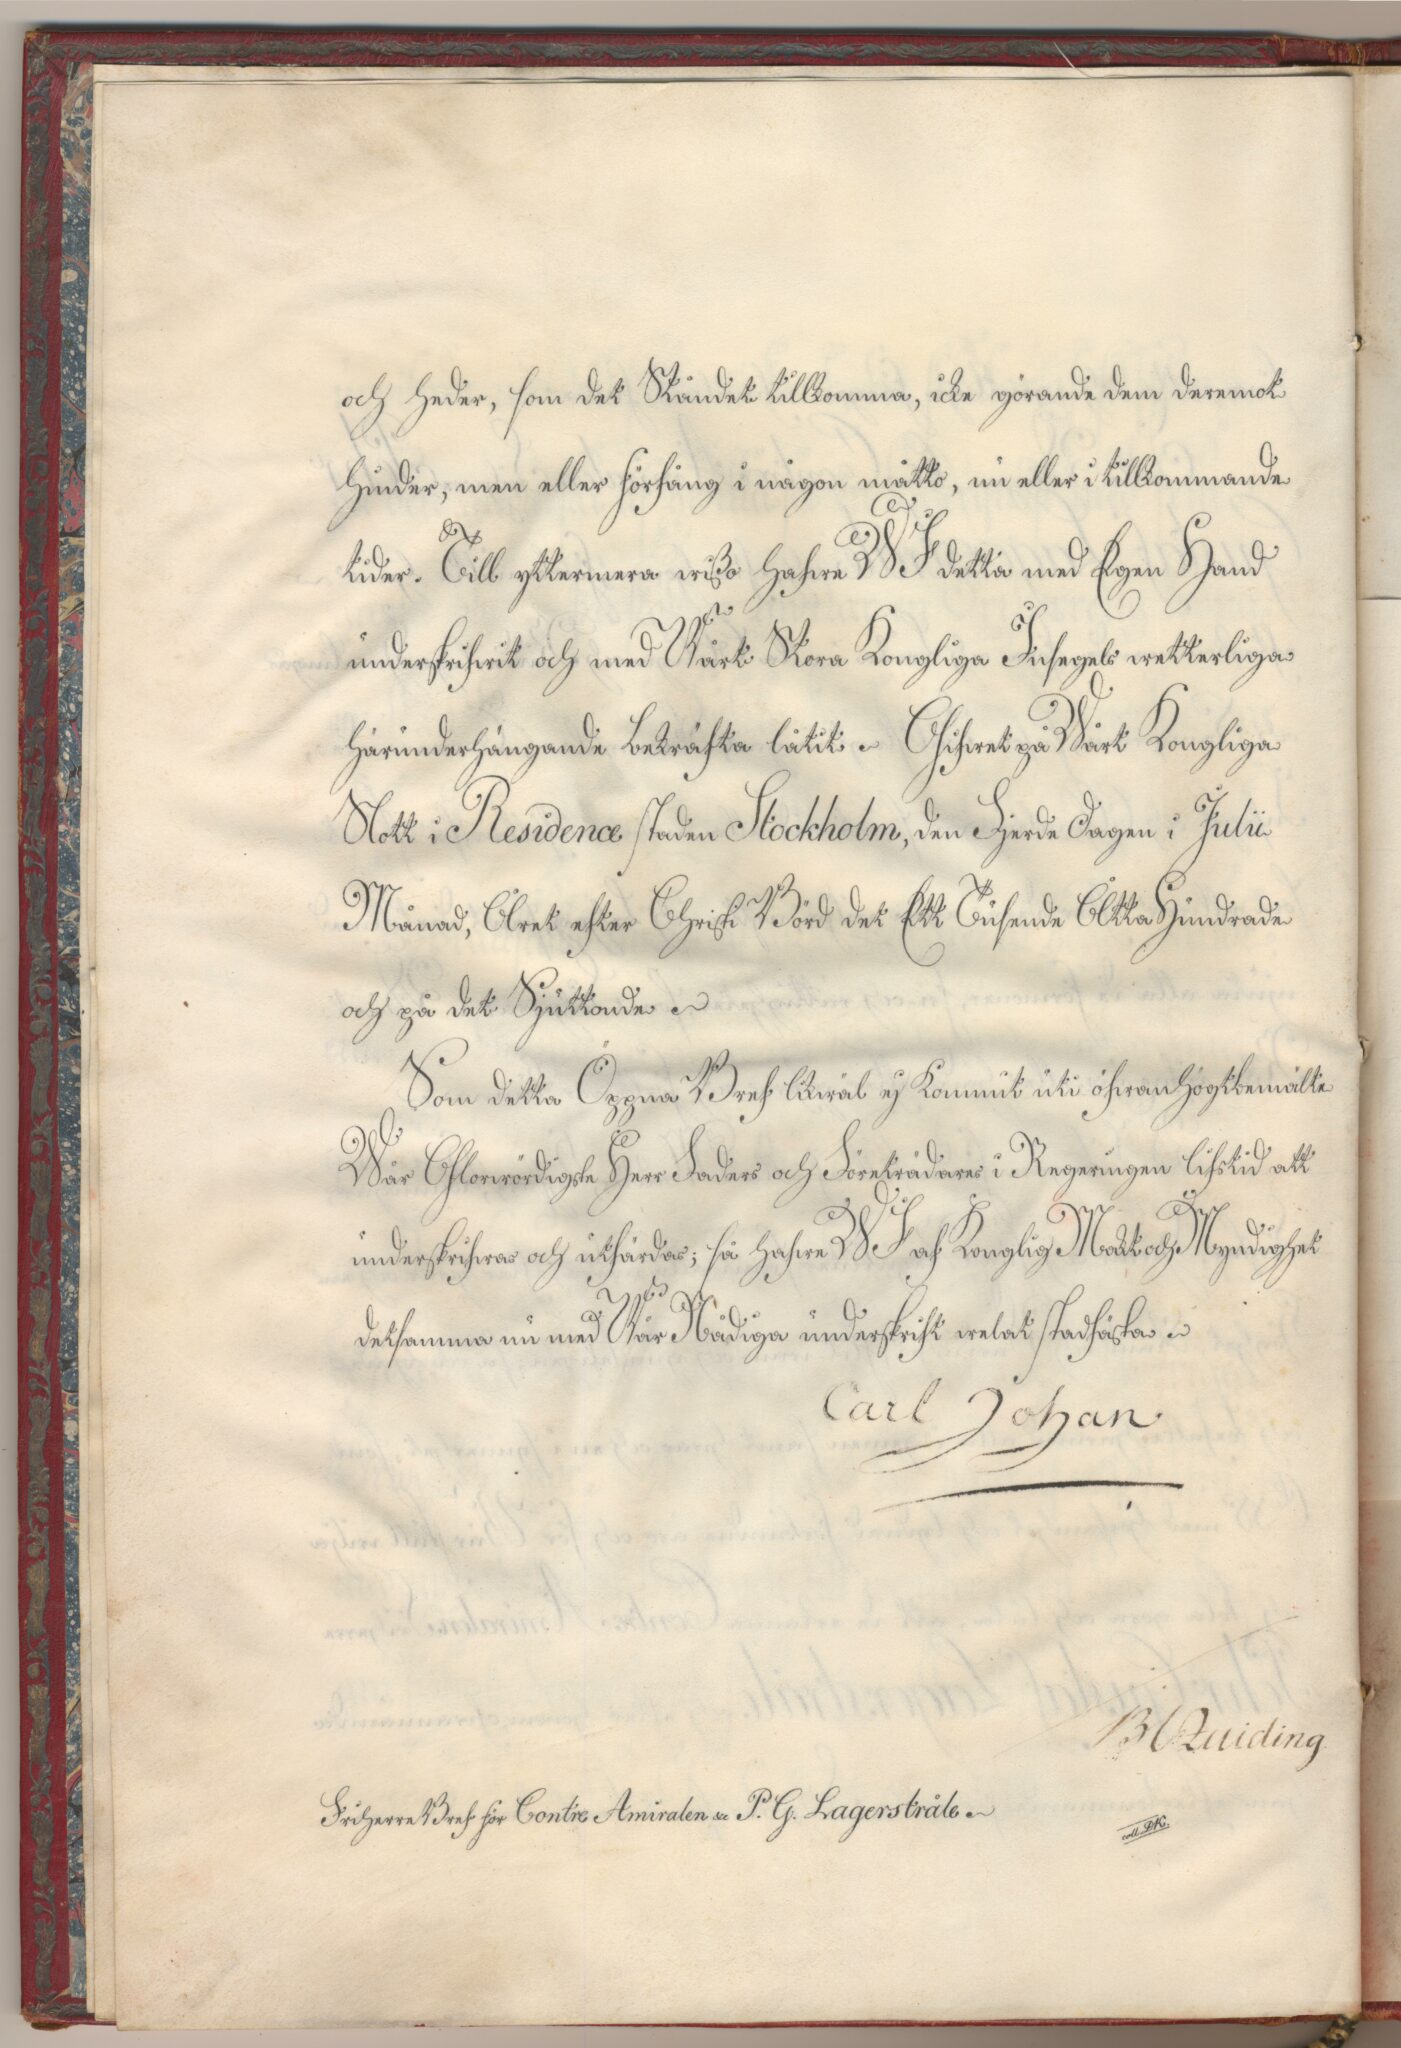 och heder, som det Ståndet tillkomma, icke görande dem deremot
hinder, men eller förfång i någon måtto, nu eller i tillkommande
tider. Till yttermera wißo hafwe WJ detta med Egen Hand
underskrifwit och med Wårt Stora Kongliga Insegels wetterliga
härunderhängande bekräfta låtit. Gifwet på Wårt Kongliga
Slott i Residence staden Stockholm, den Fjerde Dagen i Julii
Månad, Året efter Christi Börd det Ett Tusende Åtta Hundrade
och på det Sjuttonde
Som detta Öppna Bref likwäl ej kommit uti ofwan högtbemälte
Wår Glorwördigste Herr Faders och Företrädares i Regeringen lifstid att
underskrifwas och utfärdas; så hafwe WJ af Konglig Makt och Myndighet
detsamma nu med Wår Nådiga underskrift welat stadfästa
Carl Johan
B Quiding
Friherre Bref för Contre Amiralen &c P. G. Lagerstråle
coll. PK.